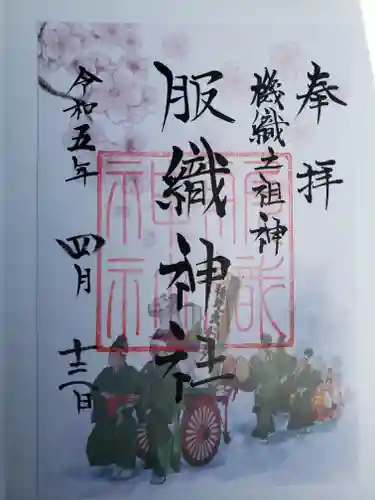 奉拝
機織之祖神
服織神社
令和五年四月十三日